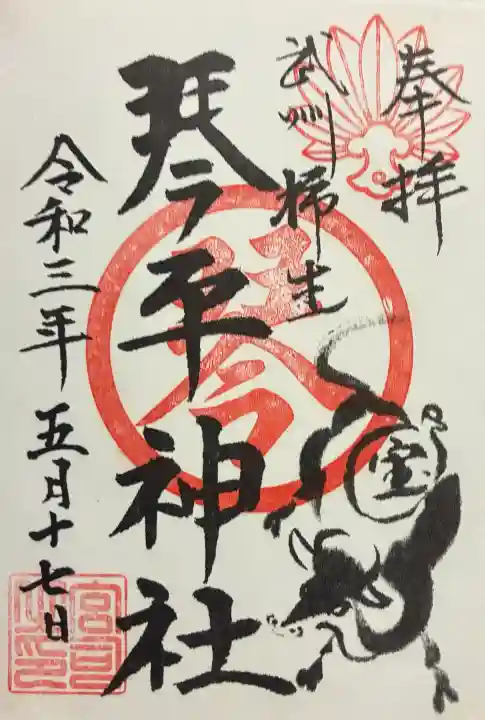 奉拝
武州 柿生
琴平神社
令和三年 五月十七日
琴
宝
宮司之印